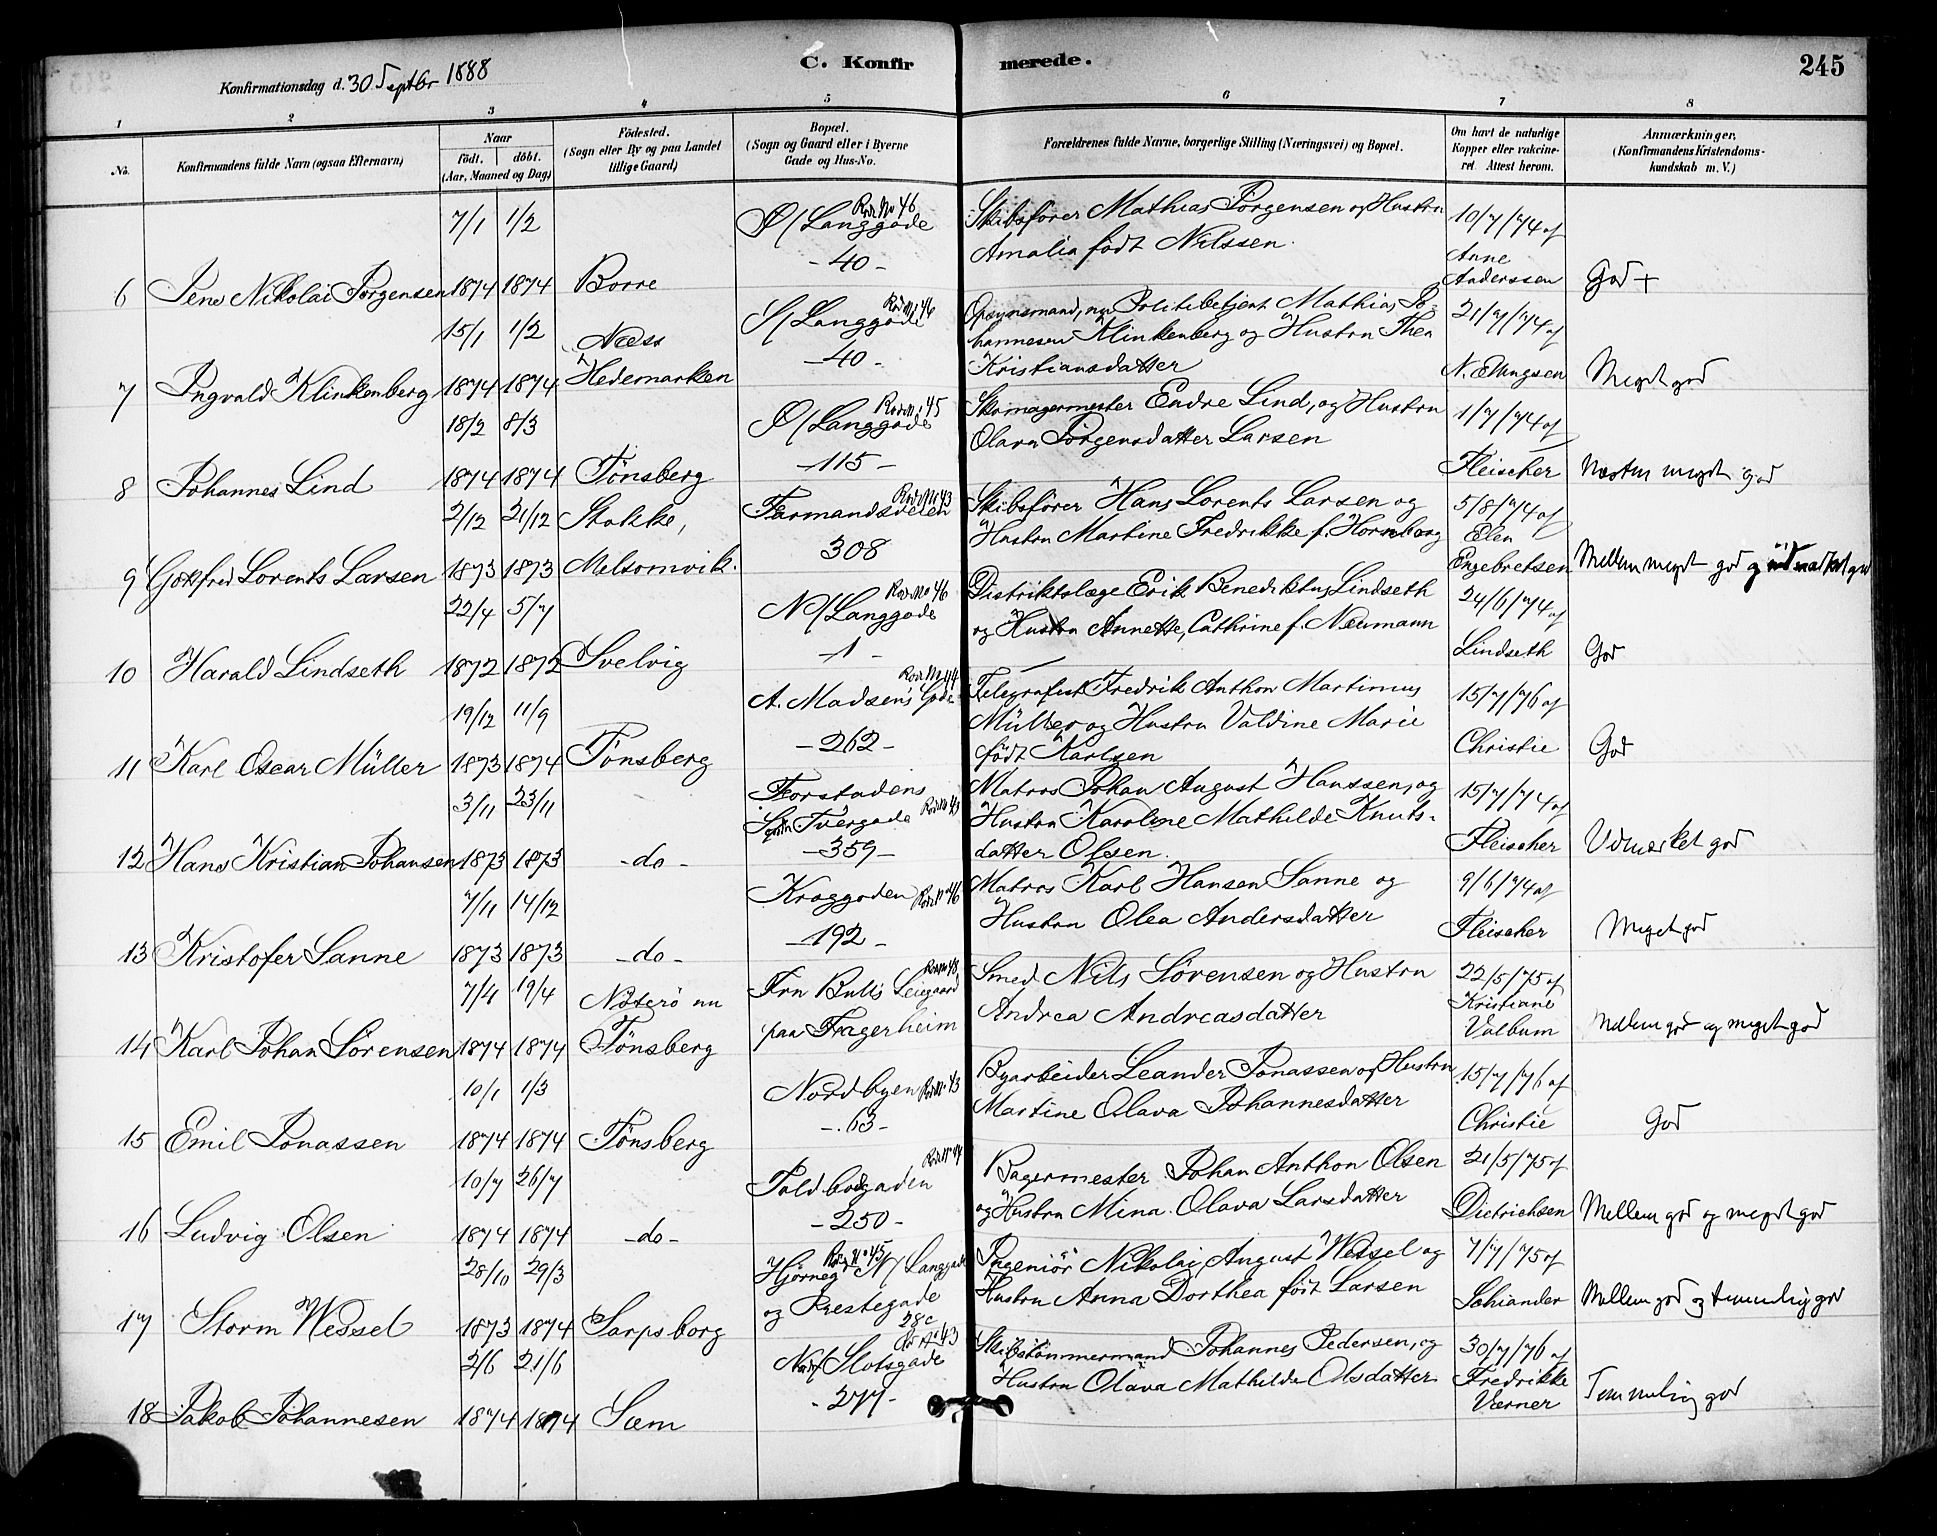 Konfirmationsdag d. 30 Septbr 1888
C. Konfirmerede.
245
1 2 3 4 5 6 7 8
No.
Konfirmandens fulde Navn (ogsaa Efternavn)
Naar
födt. döbt.
(Aar, Maaned og Dag)
Födested.
(Sogn eller By og paa Landet
tillige Gaard)
Bopæl.
(Sogn og Gaard eller i Byerne
Gade og Hus-No.
Forældrenes fulde Navne, borgerlige Stilling (Næringsvei) og Bopæl.
Om havt de naturlige
Kopper eller vakcine-
ret. Attest herom.
Anmærkninger.
(Konfirmandens Kristendoms-
kundskab m. V.)
6 Jens Nikolai Jørgensen
7/1 1/2
1874 1874
Borre
Rode No 46
Ø/Langgade
-40-
Skibsfører Mathias Jørgensen og Hustru
Amalia født Nilssen.
10/7/74 af
Anne
Anderssen
God +
7 Ingvald Klinkenberg
15/1 1/2
1874 1874
Næss
Hedemarken
Rode No 46
S/Langgade
-40-
Opsynsmand, nu Politibetjent Mathias Jo-
hannesen Klinkenberg og Hustru Thea
Kristiansdatter
21/7/74 af
N. Ellingsen
Meget god
8 Johannes Lind
18/2 8/3
1874 1874
Tønsberg
Rode No 45
Ø/Langgade
-115-
Skomagermester Endre Lind, og Hustru
Olava Jørgensdatter Larsen
1/7/74 af
Fleischer
Næsten meget god
9 Gotfred Lorents Larsen
2/12 21/12
1873 1873
Stokke,
Melsomvik.
Rode No 43
Farmandsveien
308
Skibsfører Hans Lorents Larsen og
Hustru Martine Fredrikke f. Hornborg
5/8/74 af
Elen
Engebretsen
Mellem meget god og udmærket god
10 Harald Lindseth
22/4 5/7
1872 1872
Svelvig
Rode No 46
N/Langgade
-1-
Distriktslæge Erik Benediktus Lindseth
og Hustru Annette, Cathrine f. Neumann
24/6/74 af
Lindseth
God
11 Karl Oscar Müller
19/12 11/9
1873 1874
Tønsberg
Rode No 44
A. Madsens Gade
-262-
Telegrafist Fredrik Anthon Martinus
Müller og Hustru Valdine Marie
født Karlsen
15/7/76 af
Christie
God
12 Hans Kristian Johansen
3/11 23/11
1873 1873
-do-
Forstadens
Tvergade Rode No 43
-359-
Matros Johan August Hanssen, og
Hustru Karoline Mathilde Knuts-
datter Olsen.
15/7/74 af
Fleischer
Udmærket god
13 Kristofer Sanne
7/11 14/12
1873 1873
-do-
Kroggaden Rode No 46
-192-
Matros Karl Hansen Sanne og
Hustru Olea Andersdatter
9/6/74 af
Fleischer
Meget god
14 Karl Johan Sörensen
7/4 19/4
1874 1874
Nøterö nu
Tønsberg
Fru Bulls Leiegaard
paa Fagerheim
Smed Nils Sörensen og Hustru
Andrea Andreasdatter
22/5/75 af
Kristiane
Valbum
Mellem god og meget god
15 Emil Jonassen
10/1 1/3
1874 1874
Tønsberg
Nordbyen Rode No 43
-63-
Byarbeider Leander Jonassen og Hustru
Martine Olava Johannesdatter
15/7/76 af
Christie
God
16 Ludvig Olsen
10/7 26/7
1874 1874
-do-
Toldbodgaden
-250-
Bagermester Johan Anthon Olsen
og Hustru Mina Olava Larsdatter
21/5/75 af
Dietrichsen
Mellem god og meget god
17 Storm Wessel
28/10 29/3
1873 1874
Sarpsborg
Rode No 45
Hjörneg. N/Langgade
og Prestegade
28c
Ingeniör Nikolai August Wessel og
Hustru Anna Dorthea født Larsen
7/7/75 af
Schiander
Mellem god og temmelig god
18 Jakob Johannesen
2/6 21/6
1874 1874
Sem
Rode No 43
Slotsgade
-277-
Skibstømmermand Johannes Pedersen, og
Hustru Olava Mathilde Olsdatter
30/7/76 af
Fredrikke
Værner
Temmelig god